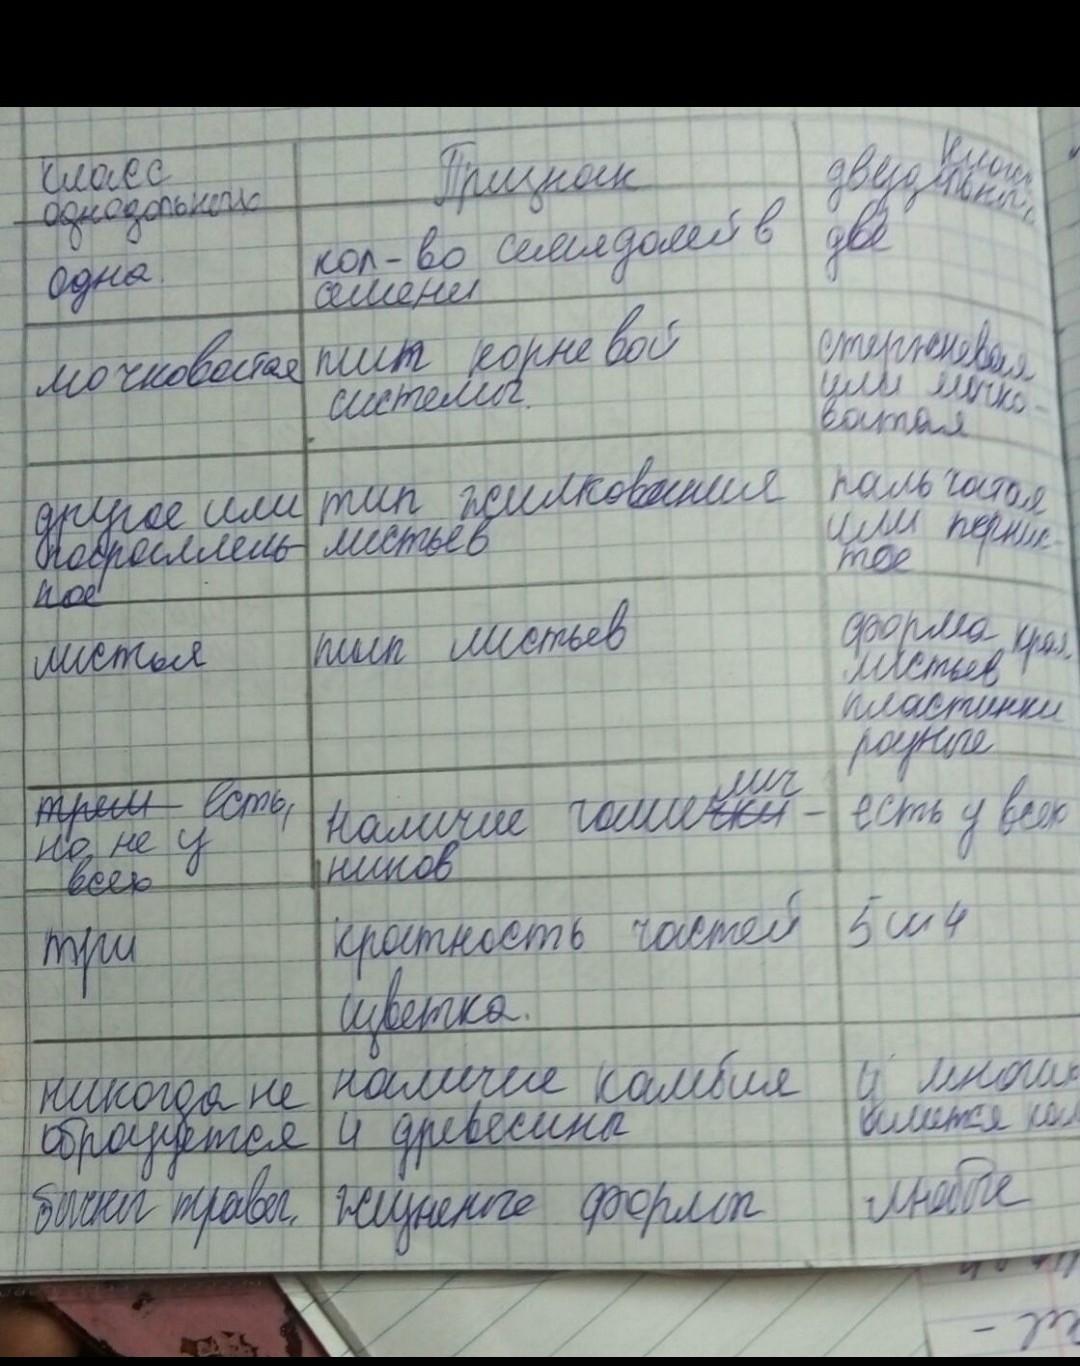 класс
однодольных
Признак
класс
двудольных
одна.
кол-во семядолей в
семени
две
мочковатая
тип корневой
системы.
стержневая
или мочко-
ватая
другое или
параллель-
ное
тип жилкования
листьев
пальчатая
или перис-
тое
листья
тип листьев
форма края
листьев
пластинки
разные
трем есть,
но не у
всех
наличие чашелис-
тиков
есть у всех
три
кратность частей
цветка.
5 и 4
никогда не
образуется
наличие камбия
и древесины
у многих
имеется
травы.
жизненые формы
любые